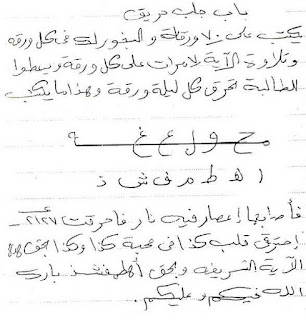 باب جلب حريق
يكتب على ٧ ورقات والبخور لك فى كل ورقه
وتلاوة الآية ٧ مرات على كل ورقة ويسطوا
الطالبة تحرق كل ليلة ورقة وهذا ما يكتب
ح و ل ع غ ه
ا ه ط م ف ش ذ
فأصابها إعصار فيه نار فاحترقت ٢١٢٧
إحترق قلب كذا فى محبة كذا وكذا بحق هذه
الآية الشريفه وبحق أهطمفشذ بارك
الله فيكم وعليكم.